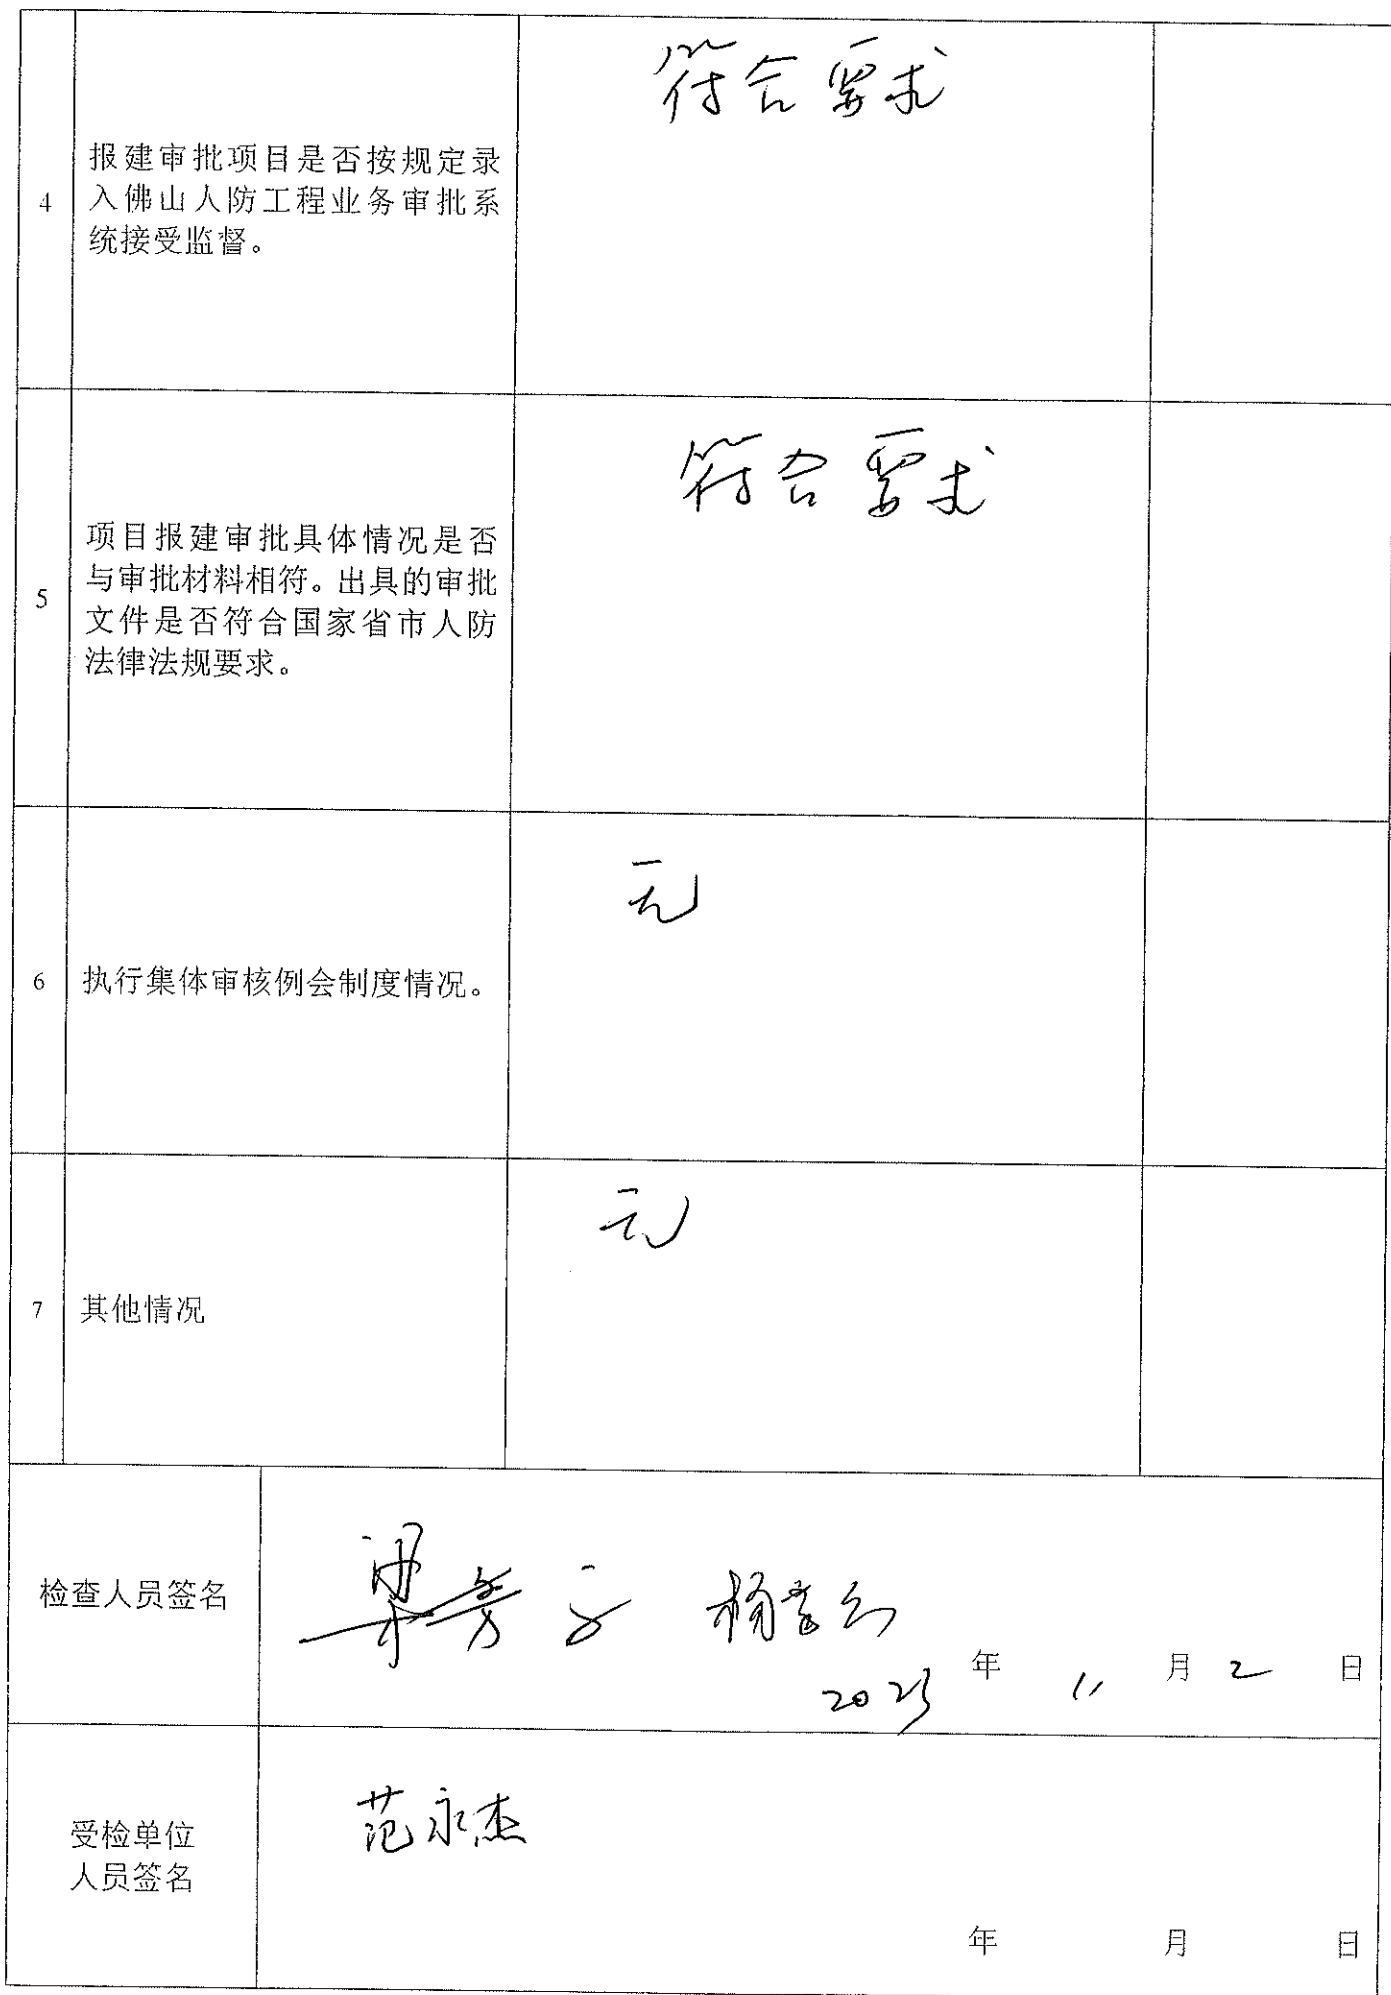 符合要求
报建审批项目是否按规定录
4
入佛山人防工程业务审批系
统接受监督。
符合要求
项目报建审批具体情况是否
与审批材料相符。出具的审批
5
文件是否符合国家省市人防
法律法规要求。
无
6 执行集体审核例会制度情况。
无
7 其他情况
检查人员签名
2023 年 11 月 2 日
范永杰
受检单位
人员签名
年 月 日